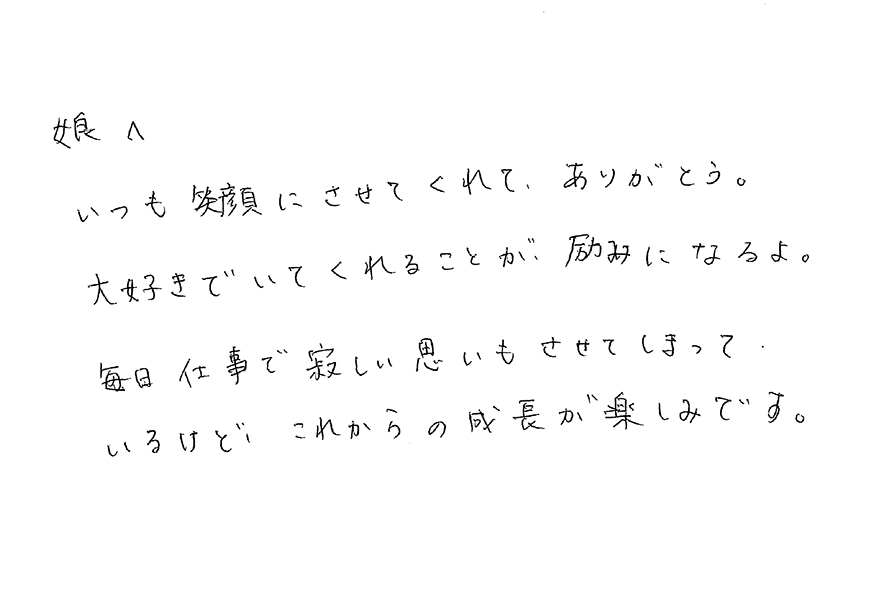 娘へ
いつも笑顔にさせてくれて、ありがとう。
大好きでいてくれることが、励みになるよ。
毎日仕事で寂しい思いもさせてしまって
いるけど、これからの成長が楽しみです。